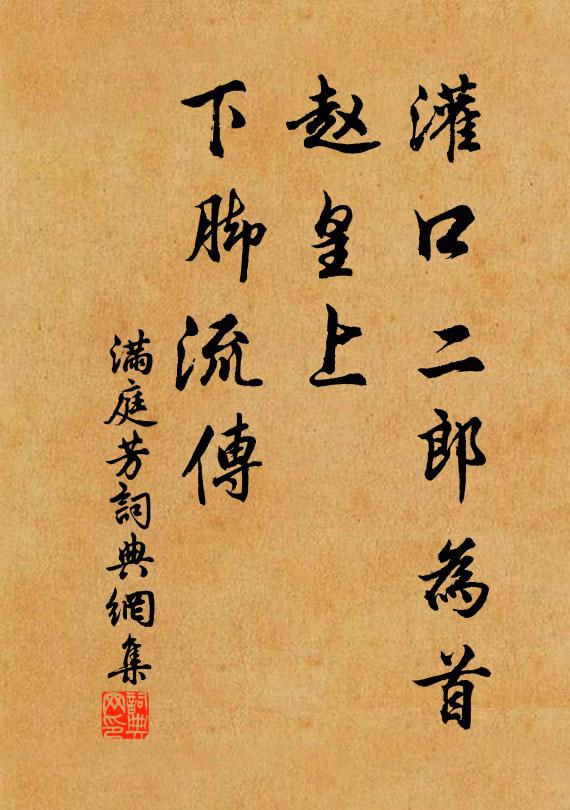 灌口二郎為首
赵皇上
下脚流傳
滿庭芳詞典網集
詞典网印